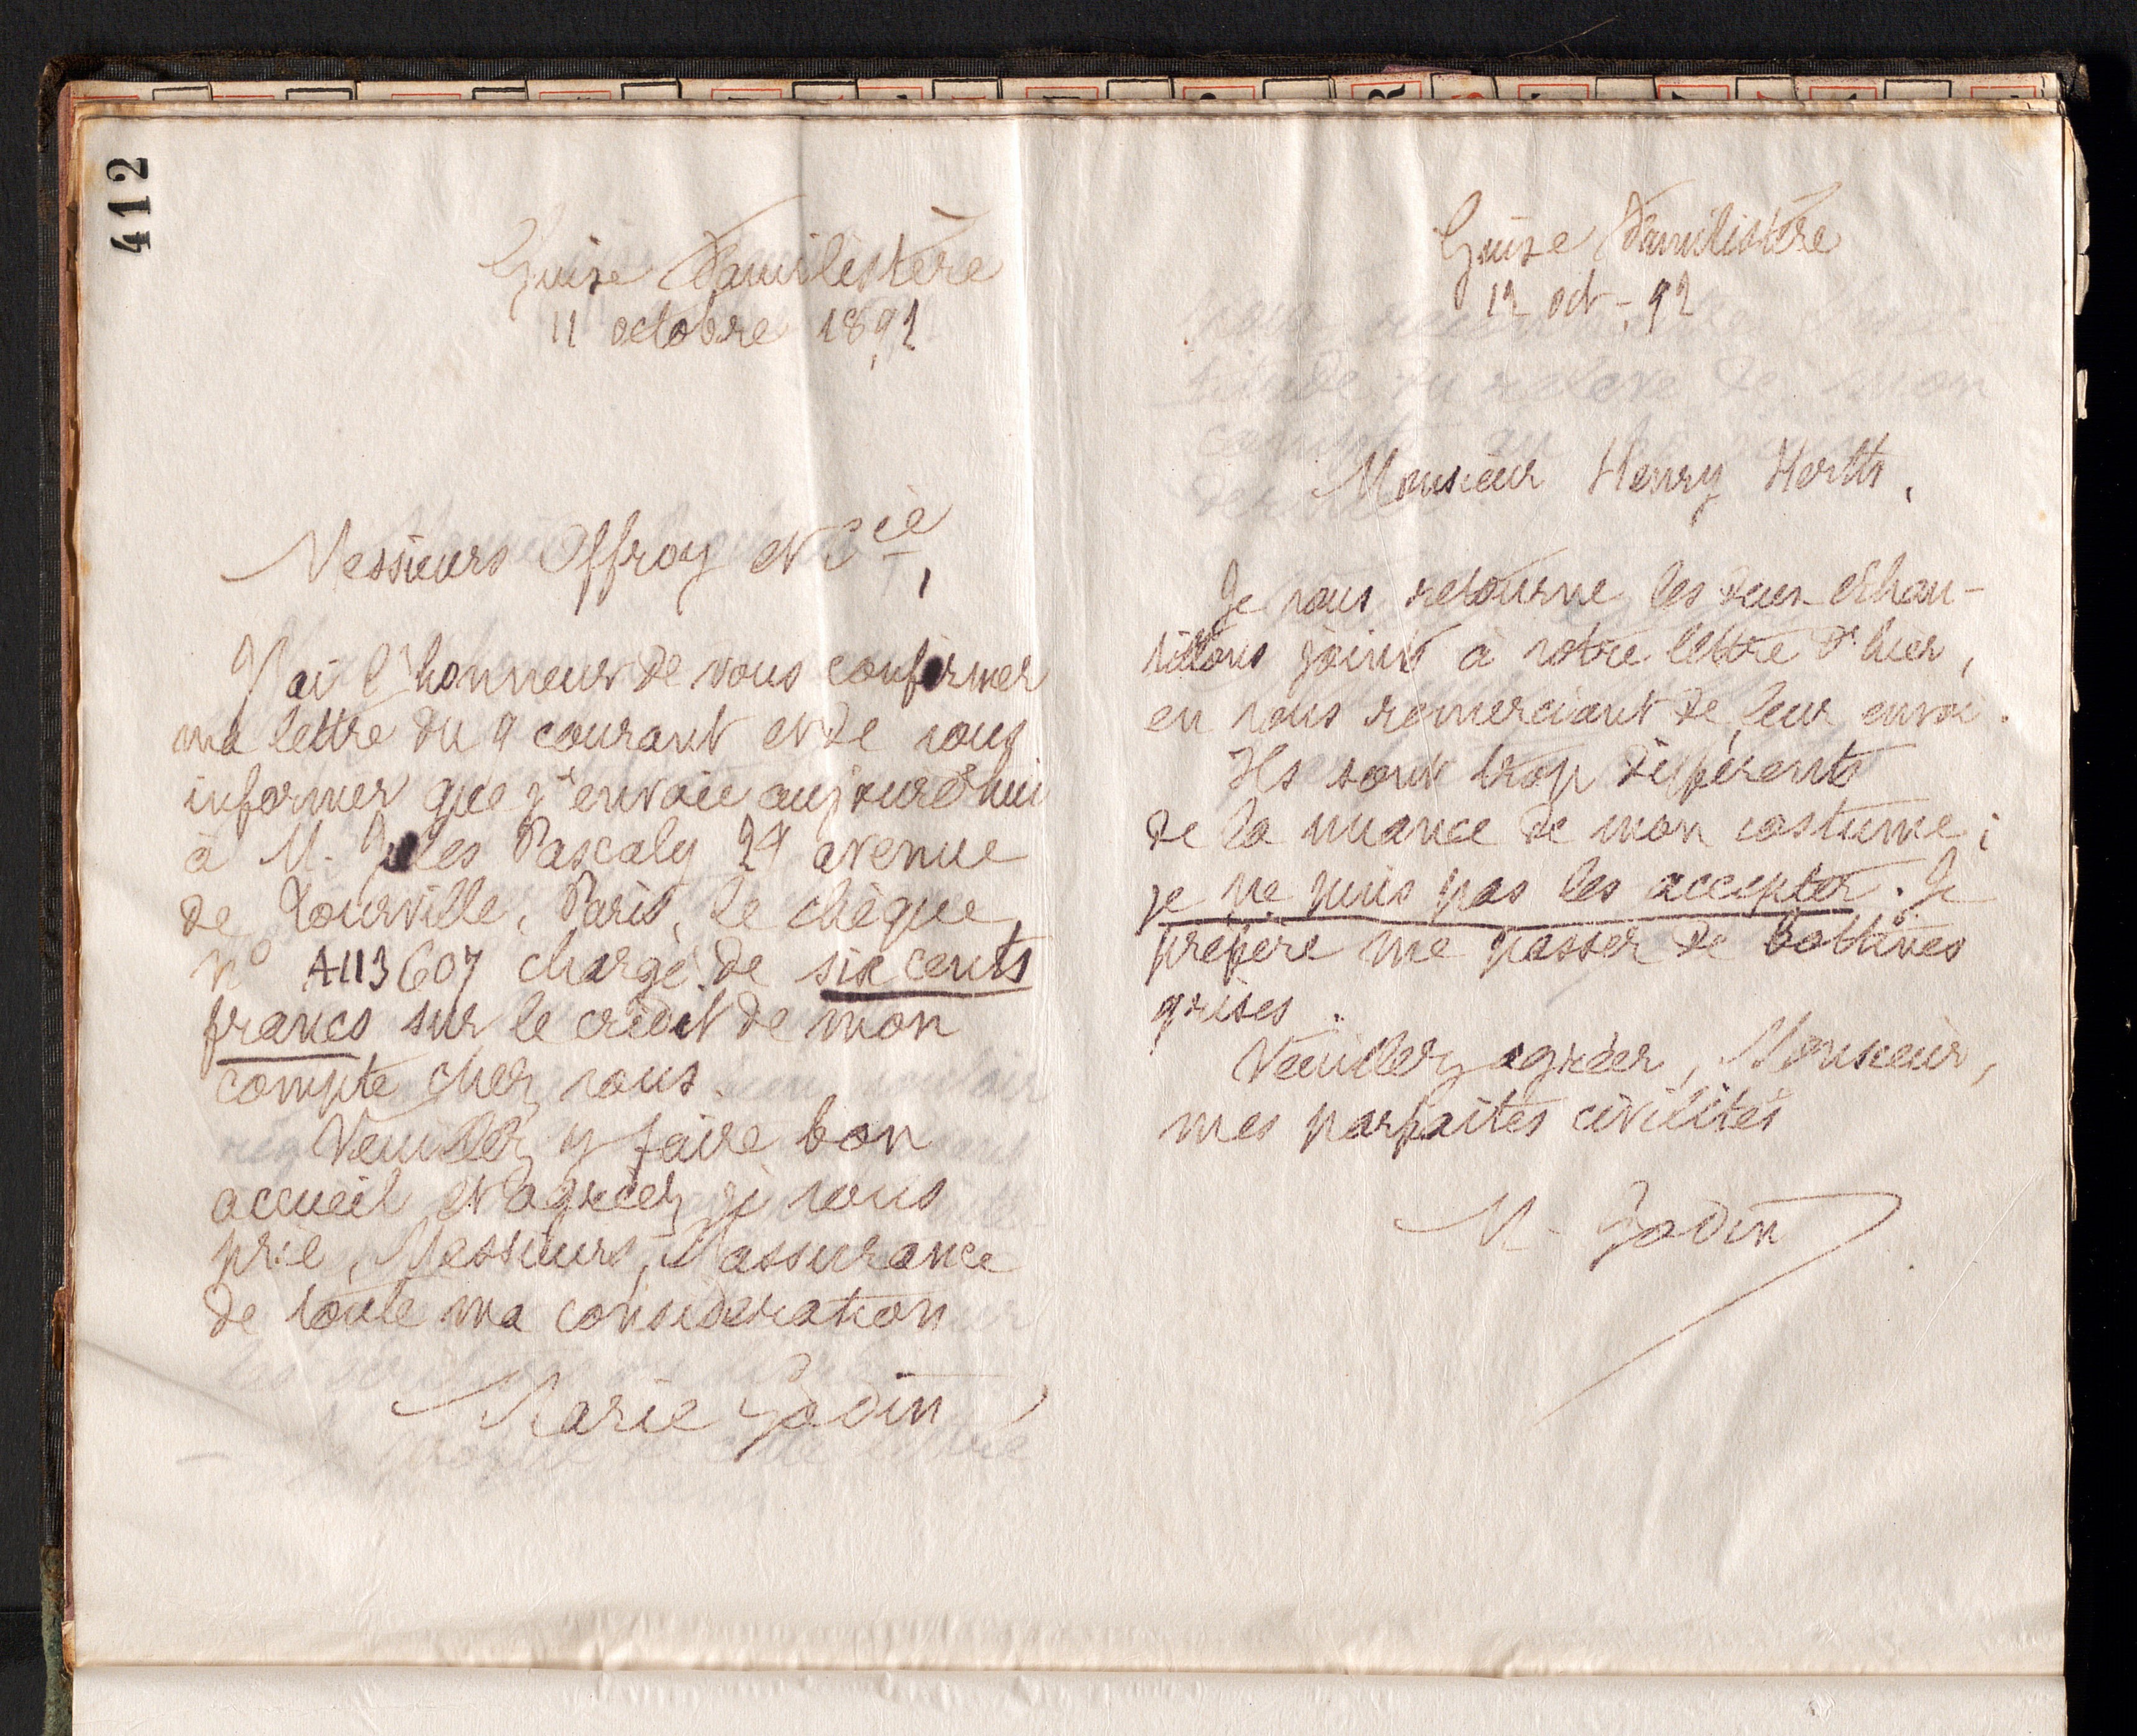 412
Guise Familistère
11 octobre 1892
Messieurs Offroy et Cie,
J'ai l'honneur de vous confirmer
ma lettre du 9 courant et de vous
informer que j'envoie aujourd'hui
à M. Jules Pascaly 29 avenue
de Tourville, Paris, le chèque
no A113607 chargé de six cents
francs sur le crédit de mon
compte chez vous.
Veuillez y faire bon
accueil et agréez, je vous
prie, Messieurs, l'assurance
de toute ma considération
Marie Godin
Guise Familistère
12 oct. 92
Monsieur Henry
Je vous retourne les deux échan-
tillons joints à votre lettre d'hier,
en vous remerciant de leur envoi.
Ils sont trop différents
de la nuance de mon costume ;
je ne puis pas les accepter. Je
préfère me passer de bottines
grises.
Veuillez agréer, Monsieur,
mes parfaites civilités
M. Godin